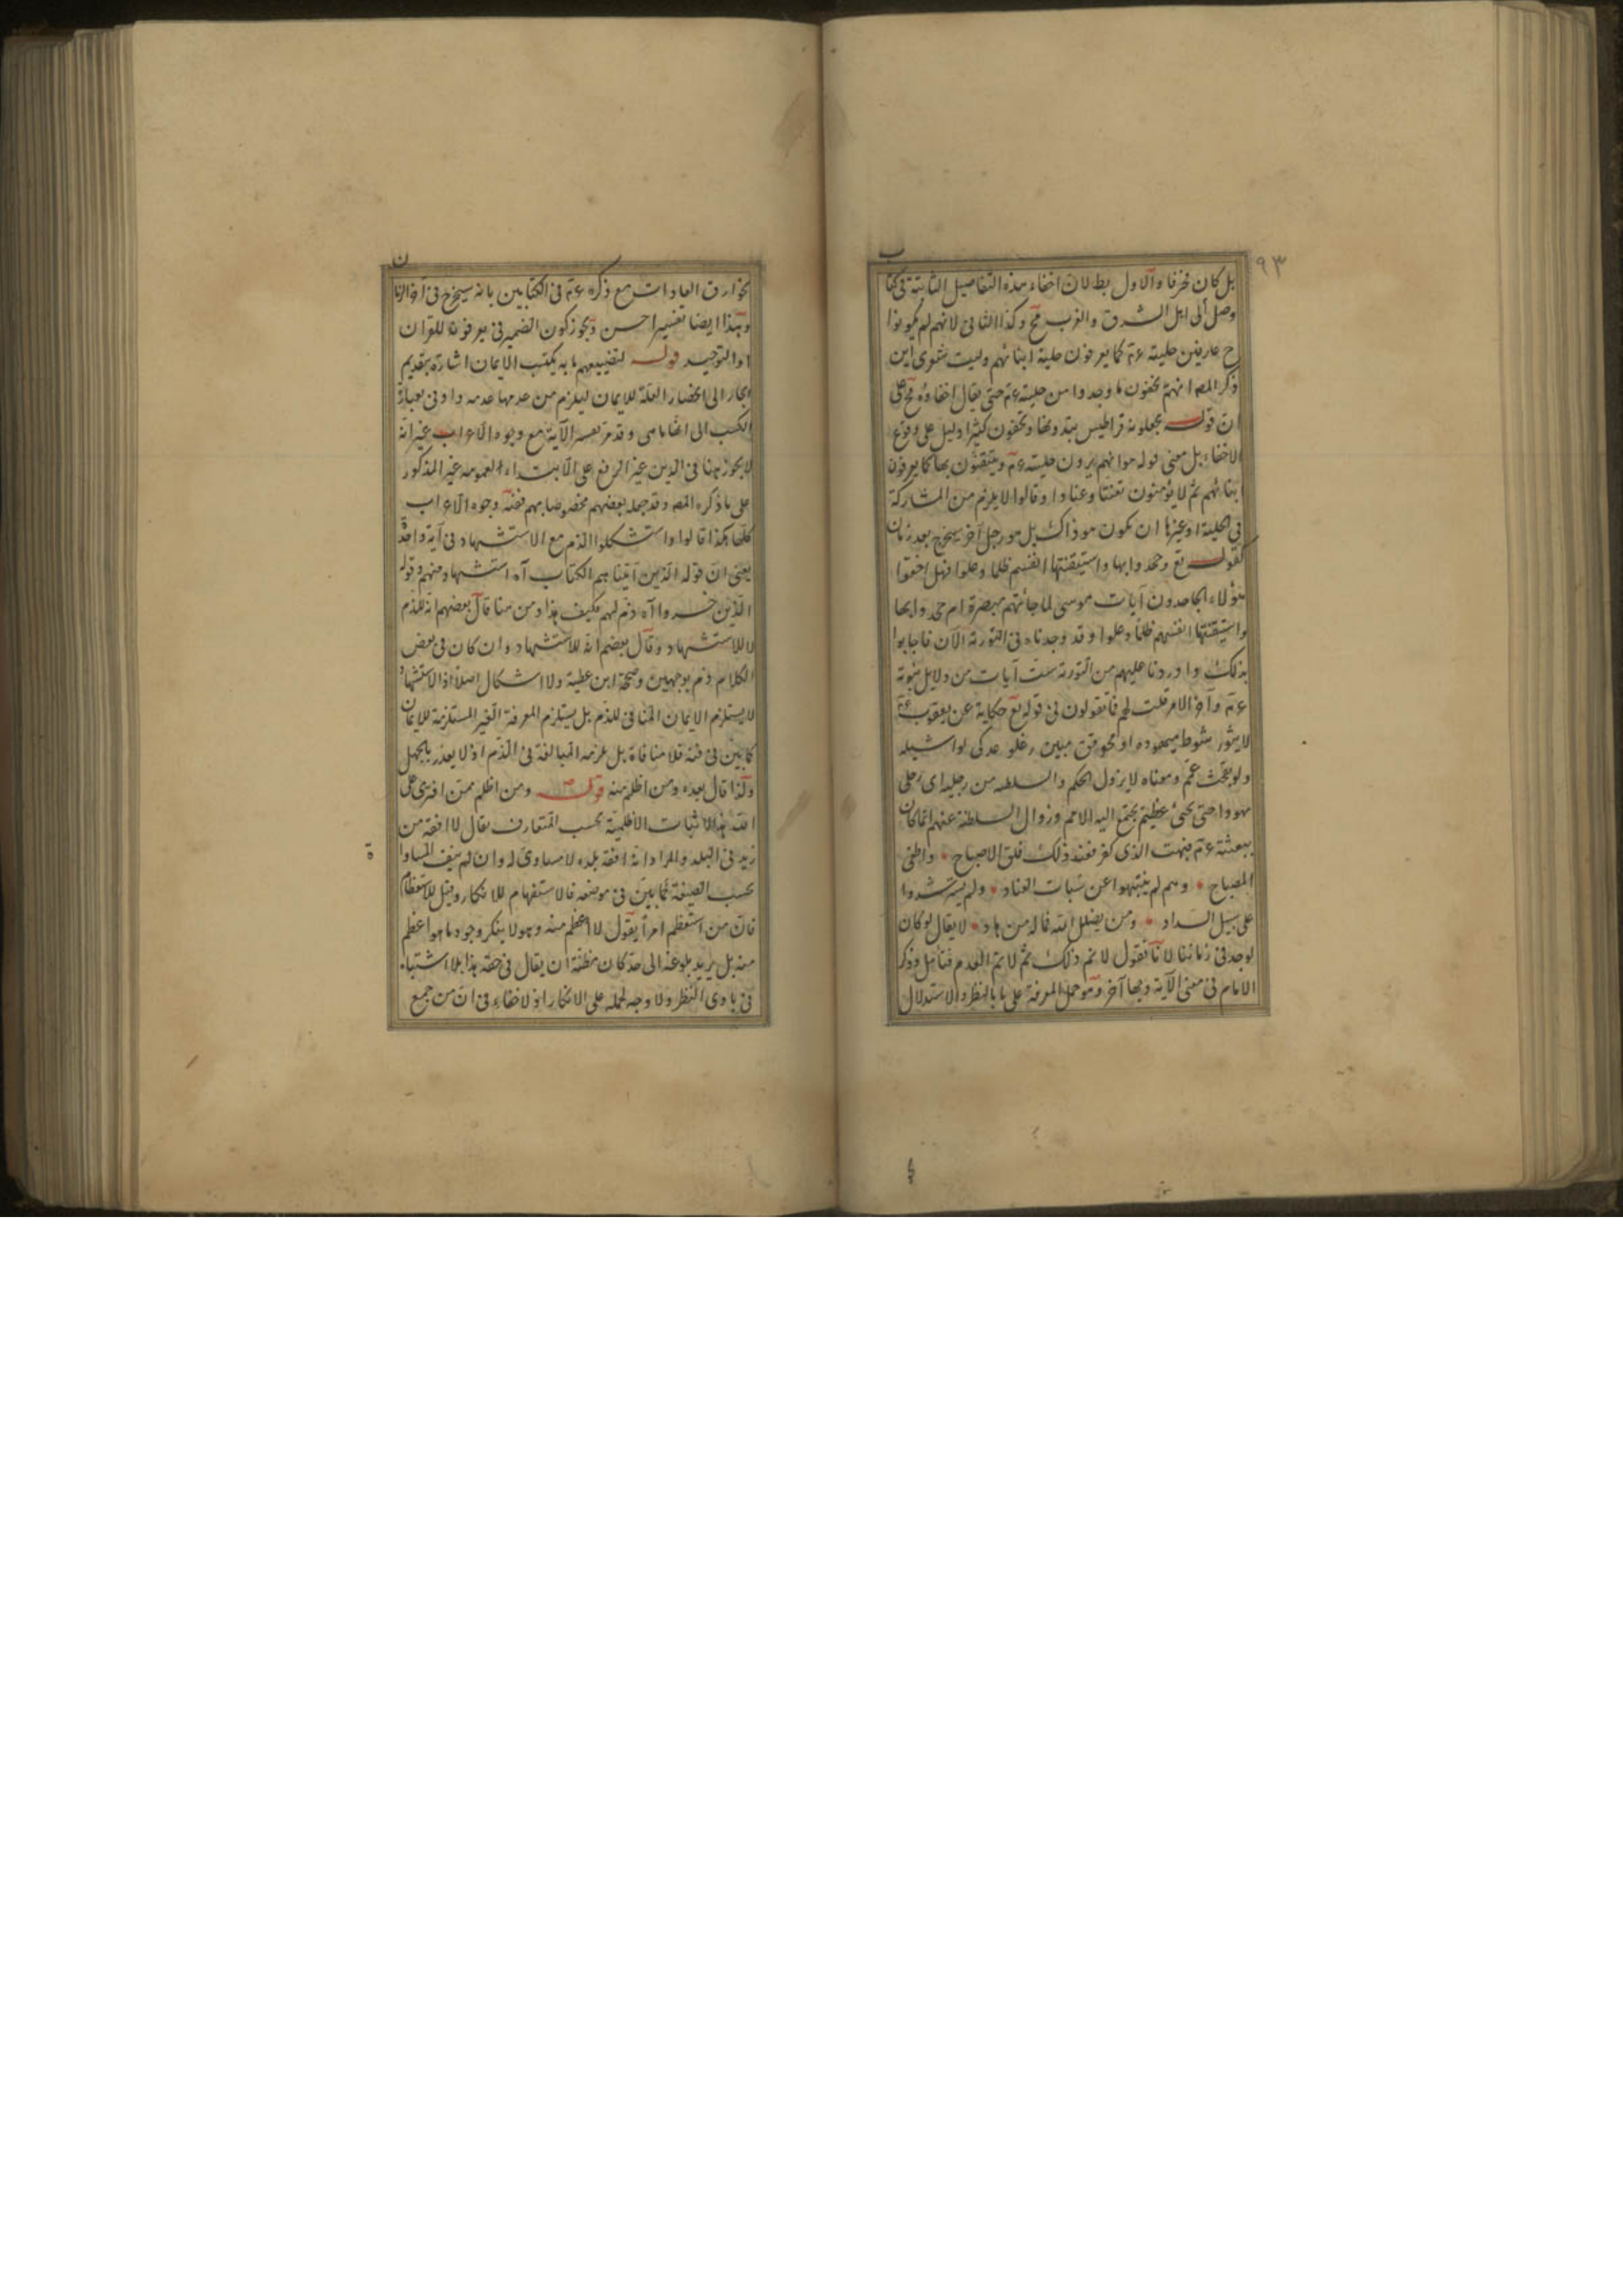 ٩٣
بل كان محرفا والاول بط لان اخفاء هذه التفاصيل الثابتة فى كتا
ب
وصل الى اهل الشرق والغرب مح وكذا الثانى لانهم لم يكونوا
ح عارفين حليته عم كما يعرفون حلية ابنائهم وليت شعرى اين
ذكر المص انهم يخفون ما وجدوا من حليته عم حتى يقال اخفاؤه مح على
ان قوله يجعلونه قراطيس يبدونها ويخفون كثيرا دليل على وقوع
الاخفاء بل معنى قوله هو انهم يرون حليته عم ويتيقنون بها كما يعرفون
ابنائهم ثم لا يؤمنون تعنتا وعنادا وقالوا لا يلزم من المشاركة
فى الحلية او غيرها ان يكون هو ذاك بل هو رجل آخر سيخرج بعد زمان
كقوله تع وجحدوا بها واستيقنتها انفسهم ظلما وعلوا فهل اخفوا
هؤلاء الجاحدون آيات موسى لما جائتهم مبصرة ام جحدوا بها
واستيقنتها انفسهم ظلما وعلوا وقد وجدناه فى التورية الآن فاجابوا
بذلك واوردنا عليهم من التورية ست آيات من دلايل نبوة
عم وآخر الامر قلت لهم فما تقولون فى قوله تع حكاية عن يعقوب عم
لا يثور شوط ميهوده او محوقق مبين رغلو عدكى لوا شيله
ولو يقحث عمم ومعناه لا يزول الحكم والسلطه من رجليه اى رجلى
يهودا حتى يجئ عظيم يجتمع اليه الامم وزوال السلطنة عنهم انما كان
ببعثته عم فبهت الذى كفر فعند ذلك فلق الاصباح واطفى
المصباح وهم لم ينتبهوا عن سبات العناد ولم يسترشدوا
على سبيل السداد ومن يضلل الله فما له من هاد لا يقال لو كان
لوجد فى زماننا لانا نقول لا نم ذلك ثم لا نم العدم فتأمل وذكر
الامام فى معنى الآية وجها آخر وهو حمل المعرفة على ما بالنظر والاستدلال
بخوارق العادات مع ذكره عم فى الكتابين بانه سيخرج فى آخر الزما
ن
وهذا ايضا تفسير احسن ويجوز كون الضمير فى يعرفونه للقرآن
او التوحيد قوله لتضييعهم ما به يكتسب الايمان اشارة بتقديم
الجار الى انحصار العلة للايمان ليلزم من عدمها عدمه واو فى بعبارة
الكسب الى وقد مر تفسير الآية مع وجوه الاعراب غير انه
لا يجوز ههنا فى الذين غير الرفع على الابتداء لعمومه غير المذكور
على ما ذكره المص وقد جعله بعضهم مخصوصا بهم ففيه وجوه الاعراب
كلها هكذا قالوا واستشكلوا الذم مع الاستشهاد فى آية واحدة
يعنى ان قوله الذين آتيناهم الكتاب آه استشهاد منهم وقوله
الذين خسروا آه ذم لهم فكيف هذا ومن هنا قال بعضهم انه للذم
لا للاستشهاد وقال بعضهم انه للاستشهاد وان كان فى بعض
الكلام ذم بوجهين وصححه ابن عطية ولا اشكال اصلا اذ الاستشهاد
لا يستلزم الايمان المنافى للذم بل يستلزم المعرفة الغير المستلزمة للايمان
كما بين فى فنه فلا منافاة بل غرضه المبالغة فى الذم اذ لا يعذر بالجهل
ولذا قال بعده ومن اظلم منه قوله ومن اظلم ممن افترى على
الله هذا لاثبات الاظلمية بحسب المتعارف يقال لا افقه من
زيد فى البلد والمراد انه افقه بلده لا مساوى له وان لم ينف المساوا
ة
بحسب الصيغة كما بين فى موضعه فالاستفهام للانكار وقيل للاستعظام
فان من استعظم امرا يقول لا اعظم منه وهو لا ينكر وجود ما هو اعظم
منه بل يريد بلوغه الى حد كان مظنة ان يقال فى حقه هذا بلا اشتباه
فى بادى النظر ولا وجه لحمله على الانكار اذ لا خفاء فى ان من جمع